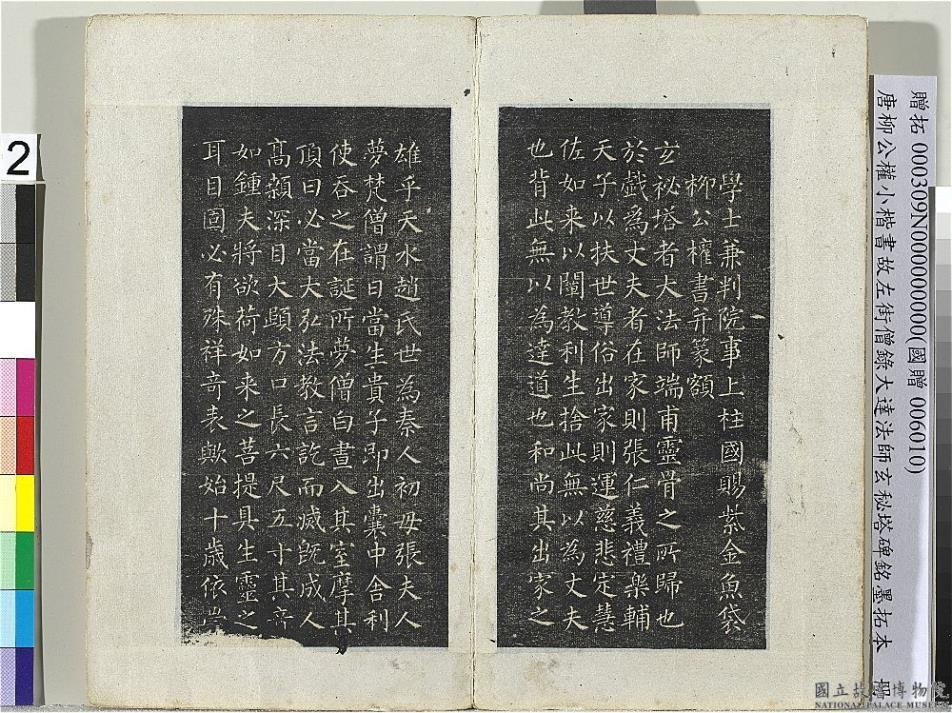 贈拓 000309N000000000(國贈 006010)
唐柳公權小楷書故左街僧錄大達法師玄秘塔碑銘墨拓本 冊
學士兼判院事上柱國賜紫金魚袋
柳公權書并篆額
玄祕塔者大法師端甫靈骨之所歸也
於戲為丈夫者在家則張仁義禮樂輔
天子以扶世導俗出家則運慈悲定慧
佐如来以闡教利生捨此無以為丈夫
也背此無以為達道也和尚其出家之
雄乎天水趙氏世為秦人初母張夫人
夢梵僧謂曰當生貴子即出囊中舍利
使吞之在誕所夢僧白晝入其室摩其
頂曰必當大弘法教言訖而滅既成人
高顙深目大頤方口長六尺五寸其音
如鍾夫將欲荷如来之菩提具生靈之
耳目固必有殊祥奇表歟始十歲依
2
國立故宮博物院
NATIONAL PALACE MUSEUM